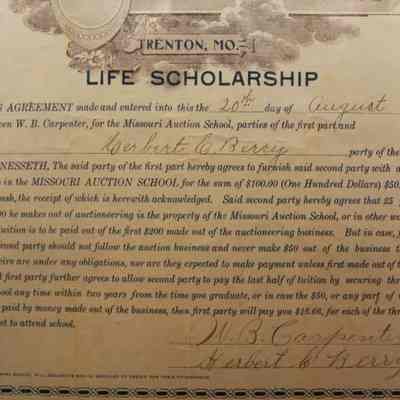 TRENTON, MO.
LIFE SCHOLARSHIP
AGREEMENT made and entered into this the 20th day of August
een W. B. Carpenter, for the Missouri Auction School, parties of the first part and
Herbert C Berry party of the
NESSETH, The said party of the first part hereby agrees to furnish said second party with a
in the MISSOURI AUCTION SCHOOL for the sum of $100.00 (One Hundred Dollars) $50.
ash, the receipt of which is herewith acknowledged. Said second party hereby agrees that 25
00 he makes out of auctioneering is the property of the Missouri Auction School, or in other wo
uition is to be paid out of the first $200 made out of the auctioneering business. But in case,
ond party should not follow the auction business and never make $50 out of the business t
eirs are under any obligations, nor are they expected to make payment unless first made out of t
first party further agrees to allow second party to pay the last half of tuition by securing thr
ool any time within two years from the time you graduate, or in case the $50, or any part of
paid by money made out of the business, then first party will pay you $16.66, for each of the thr
et to attend school.
W. B. Carpenter
Herbert C Berry